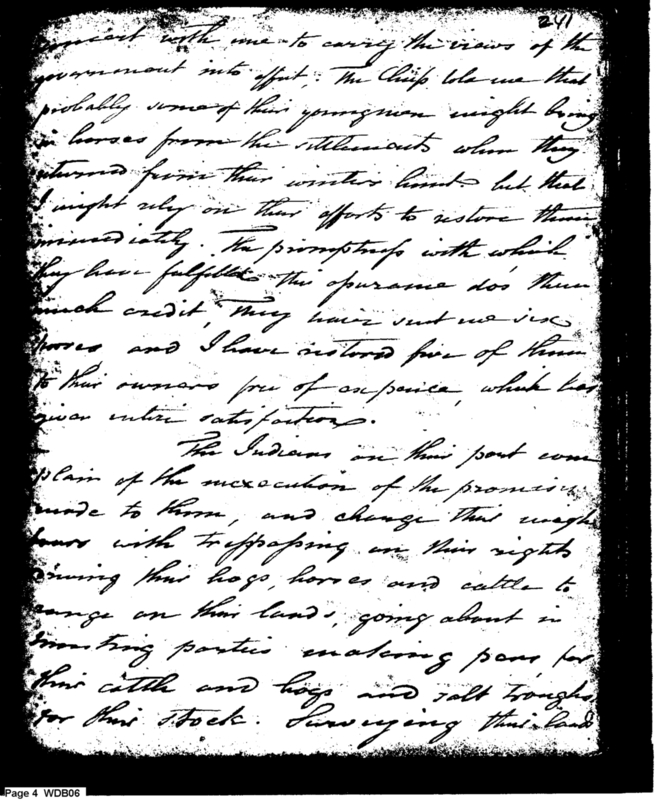 241
concert with me to carry the views of the
government into effect; The Chiefs told me that
probably some of their young men might bring
in horses from the settlements when they
returned from their winters hunt but that
I might rely on their efforts to restore them
immediately. The promptness with which
they have fulfilled this assurance do's them
much credit, They have sent me six
horses and I have restored five of them
to their owners free of expence, which has
given entire satisfaction.
The Indians on their part com
plain of the inexecution of the promises
made to them, and charge their neigh
bours with trespassing on their rights
driving their hogs, horses and cattle to
range on their lands, going about in
hunting parties making pens for
their cattle and hogs and salt troughs
for their stock. Surveying their lands
Page 4 WDB06